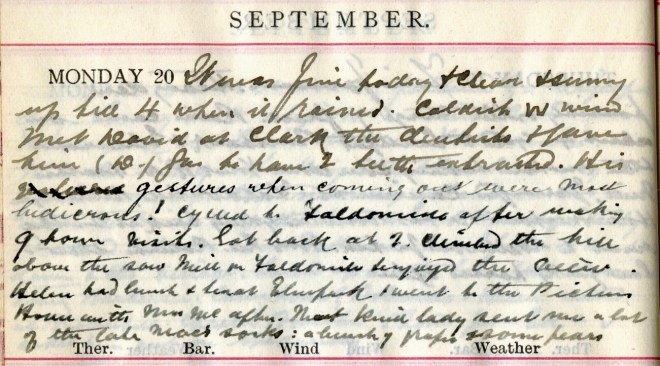 SEPTEMBER.
MONDAY 20 It was fine today & clear & sunny
up till 4 when it rained. Coldish W wind
Met David at Clark the dentists & gave
him (D.) gas to have 2 teeth extracted. His
gestures when coming out were most
ludicrous! Cycled to after making
9 home visits. Got back at 7. climbed the hill
above the saw mill & enjoyed the view.
Helen had lunch & tea at & went to the Picture
House with Mrs Mc after. Most kind lady sent me a lot
of the late Mac's socks: a bunch of grapes & some pears
Ther. Bar. Wind Weather